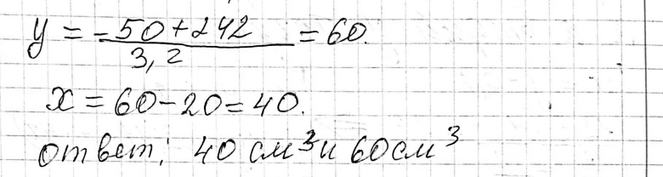 y = -50+242 / 3,2 = 60.
x = 60-20 = 40.
ответ: 40 см³ и 60 см³